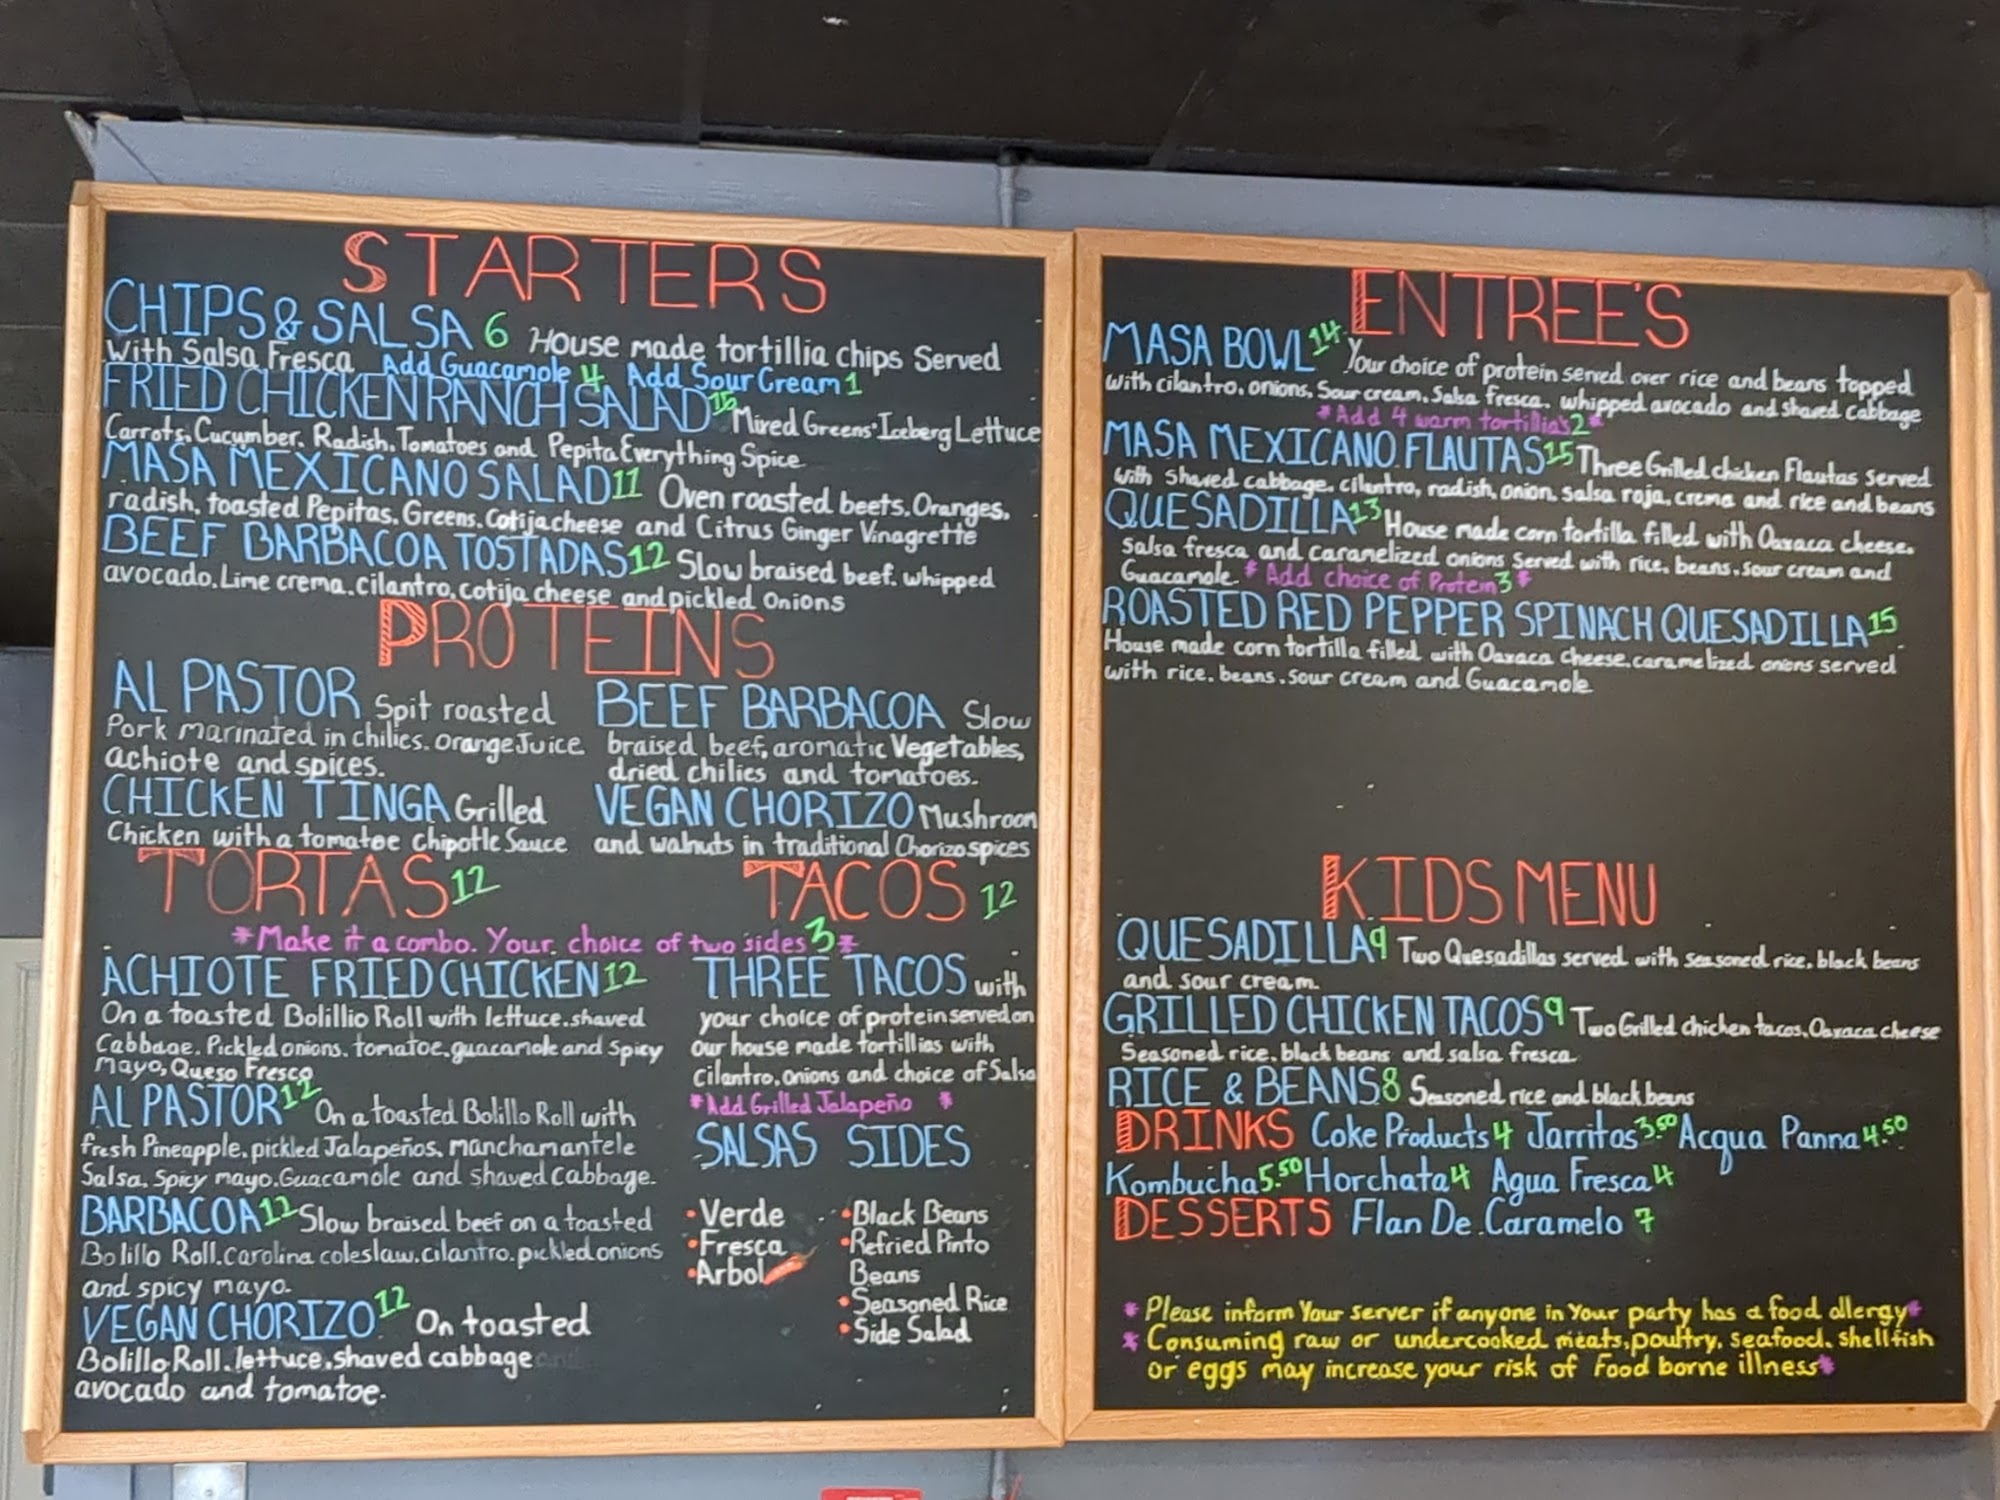 STARTERS
CHIPS & SALSA 6 House made tortillia chips Served
with Salsa Fresca Add Guacamole 4 Add Sour Cream 1
FRIED CHICKEN RANCH SALAD Mixed Greens Iceberg Lettuce
Carrots, Cucumber, Radish, Tomatoes and Pepita Everything Spice
MASA MEXICANO SALAD 11 Oven roasted beets, Oranges,
radish, toasted Pepitas, Greens, Cotija cheese and Citrus Ginger Vinagrette
BEEF BARBACOA TOSTADAS 12 Slow braised beef, whipped
avocado, Lime crema, cilantro, cotija cheese and pickled Onions
PROTEINS
AL PASTOR Spit roasted
Pork marinated in chilies, orange Juice
achiote and spices.
BEEF BARBACOA Slow
braised beef, aromatic Vegetables,
dried chilies and tomatoes.
CHICKEN TINGA Grilled
Chicken with a tomatoe chipotle Sauce
VEGAN CHORIZO Mushroom
and walnuts in traditional Chorizo spices
TORTAS 12
TACOS 12
*Make it a combo. Your choice of two sides 3*
ACHIOTE FRIED CHICKEN 12
On a toasted Bolillio Roll with lettuce, shaved
Cabbage, Pickled onions, tomatoe, guacamole and Spicy
Mayo, Queso Fresco
AL PASTOR 12 On a toasted Bolillo Roll with
fresh Pineapple, pickled Jalapeños, manchamantele
Salsa, Spicy mayo, Guacamole and shaved Cabbage.
BARBACOA 12 Slow braised beef on a toasted
Bolillo Roll, Carolina coleslaw, cilantro, pickled onions
and spicy mayo.
VEGAN CHORIZO 12 On toasted
Bolillo Roll, lettuce, shaved cabbage
avocado and tomatoe.
THREE TACOS with
your choice of protein served on
our house made tortillias with
Cilantro, onions and choice of Salsa
*Add Grilled Jalapeño *
SALSAS
• Verde
• Fresca
• Arbol
SIDES
• Black Beans
• Refried Pinto
Beans
• Seasoned Rice
• Side Salad
ENTREE'S
MASA BOWL 14 Your choice of protein served over rice and beans topped
with cilantro, onions, Sour cream, Salsa fresca, whipped avocado and shaved cabbage
*Add 4 warm tortillia's 2*
MASA MEXICANO FLAUTAS 15 Three Grilled chicken Flautas served
with shaved cabbage, cilantro, radish, onion, salsa roja, crema and rice and beans
QUESADILLA 13 House made corn tortilla filled with Oaxaca cheese,
Salsa fresca and caramelized onions Served with rice, beans, sour cream and
Guacamole * Add choice of Protein 3 *
ROASTED RED PEPPER SPINACH QUESADILLA 15
House made corn tortilla filled with Oaxaca cheese, caramelized onions served
with rice, beans, sour cream and Guacamole
KIDS MENU
QUESADILLA 9 Two Quesadillas served with seasoned rice, black beans
and sour cream.
GRILLED CHICKEN TACOS 9 Two Grilled chicken tacos, Oaxaca cheese
Seasoned rice, black beans and salsa fresca
RICE & BEANS 8 Seasoned rice and black beans
DRINKS Coke Products 4 Jarritos 3.50 Acqua Panna 4.50
Kombucha 5.50 Horchata 4 Agua Fresca 4
DESSERTS Flan De Caramelo 7
* Please inform Your server if anyone in Your party has a food allergy*
* Consuming raw or undercooked meats, poultry, seafood, shellfish
or eggs may increase your risk of Food borne illness*